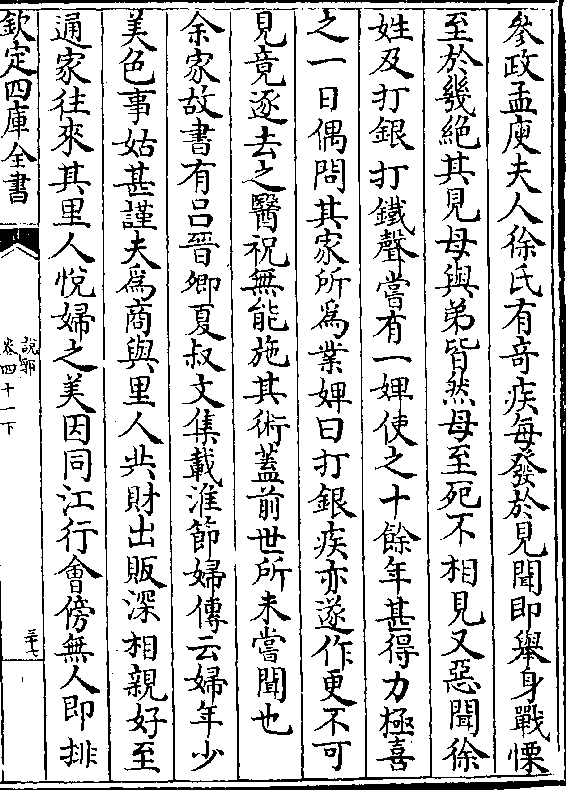 參政孟庾夫人徐氏有奇疾每發於見聞即舉身戰慄
至於幾絶其見母與弟皆然母至死不相見又惡聞徐
姓及打銀打鐵聲嘗有一婢使之十餘年甚得力極喜
之一日偶問其家所為業婢曰打銀疾亦遂作更不可
見竟逐去之醫祝無能施其術蓋前世所未嘗聞也
余家故書有吕晉卿夏叔文集載淮節婦傳云婦年少
美色事姑甚謹夫為商與里人共財出販深相親好至
通家往來其里人悦婦之美因同江行會傍無人即排
欽定四庫全書
説郛
卷四十一下
三十七